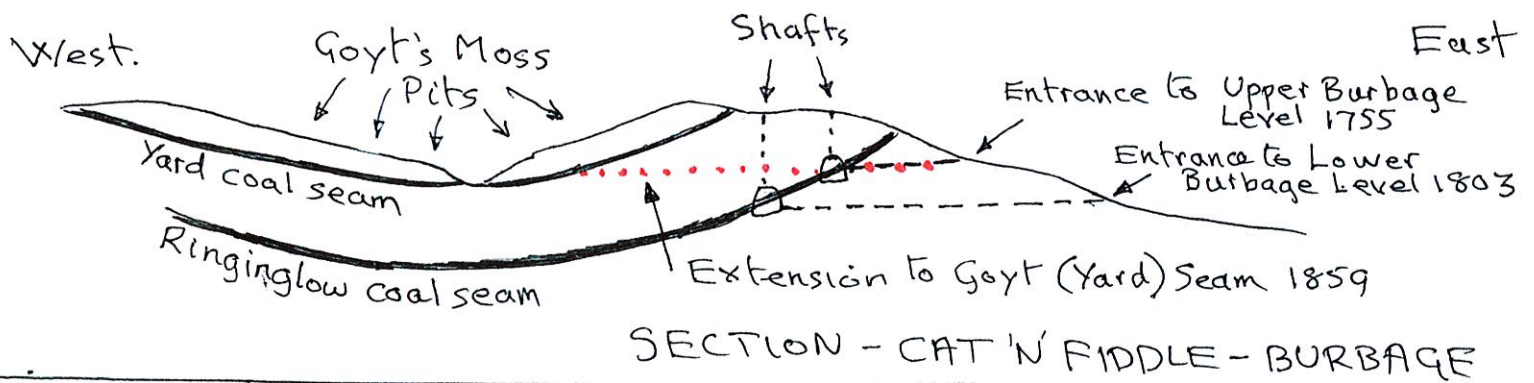 West.
Goyt's Moss
Pits
Shafts
East
Entrance to Upper Burbage
Level 1755
Entrance to Lower
Burbage Level 1803
Yard coal seam
Ringinglow coal seam
Extension to Goyt (Yard) Seam 1859
SECTION - CAT 'N' FIDDLE - BURBAGE